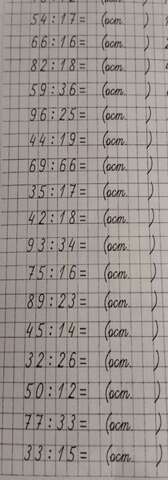 54:17= (ост. )
66:16= (ост. )
82:18= (ост. )
59:36= (ост. )
96:25= (ост. )
44:19= (ост. )
69:66= (ост. )
35:17= (ост. )
42:18= (ост. )
93:34= (ост. )
75:16= (ост. )
89:23= (ост. )
45:14= (ост. )
32:26= (ост. )
50:12= (ост. )
77:33= (ост. )
33:15= (ост. )